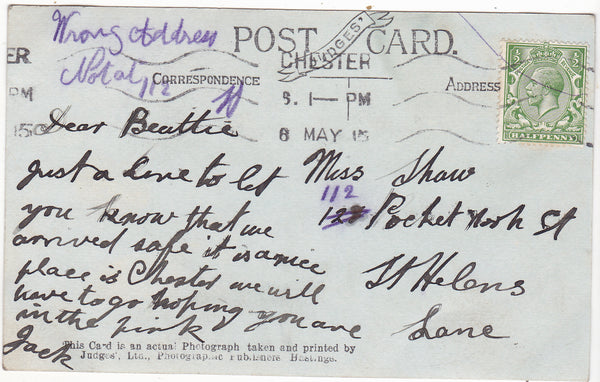 Wrong Address
Not at 112
POST CARD.
JUDGES'
CORRESPONDENCE
ADDRESS
CHESTER
8. 1 — PM
6 MAY 15
ER
PM
150
HALFPENNY
Dear Beattie
just a line to let
you know that we
arrived safe it is a nice
place is Chester we will
have to go hoping you are
in the pink
Jack
Miss Shaw
112
Pocket Nook St
St Helens
Lane
This Card is an actual Photograph taken and printed by
Judges', Ltd., Photographic Publishers Hastings.